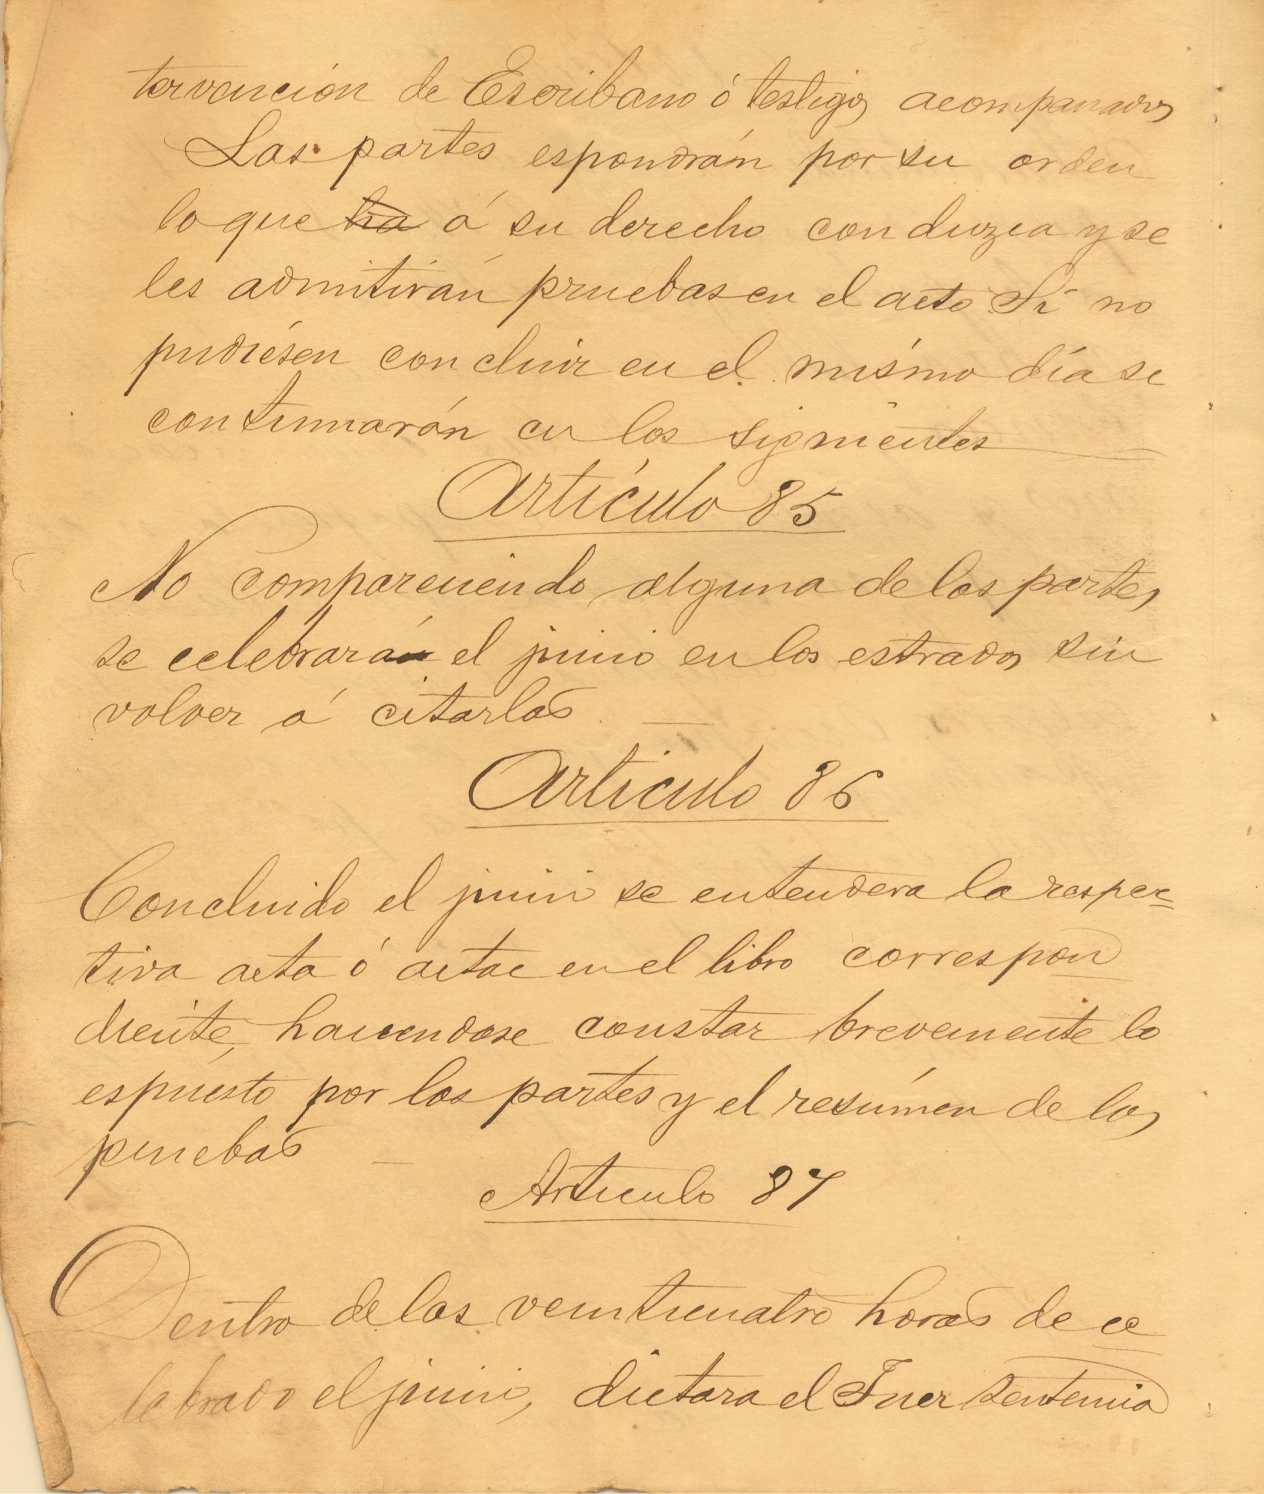 tervención de Escribano ó testigos acompañados
Las partes espondrán por su orden
lo que ha á su derecho conduzca y se
les admitirán pruebas en el acto Si no
pudiésen concluir en el mismo día se
continuarán en los siguientes
Artículo 85
No compareciendo alguna de las partes,
se celebrará el juicio en los estrados sin
volver á citarlas
Artículo 86
Concluido el juicio se entendera la respec-
tiva acta ó actac en el libro correspon
diente, haciendose constar brevemente lo
espuesto por las partes y el resúmen de las
pruebas
Artículo 87
Dentro de las veinticuatro horas de ce
lebrado el juicio, dictara el Juez sentencia